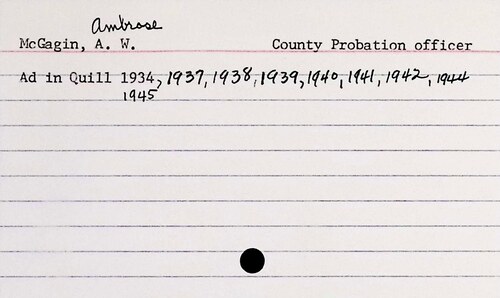 Ambrose
McGagin, A. W. County Probation officer
Ad in Quill 1934, 1937, 1938, 1939, 1940, 1941, 1942, 1944
1945